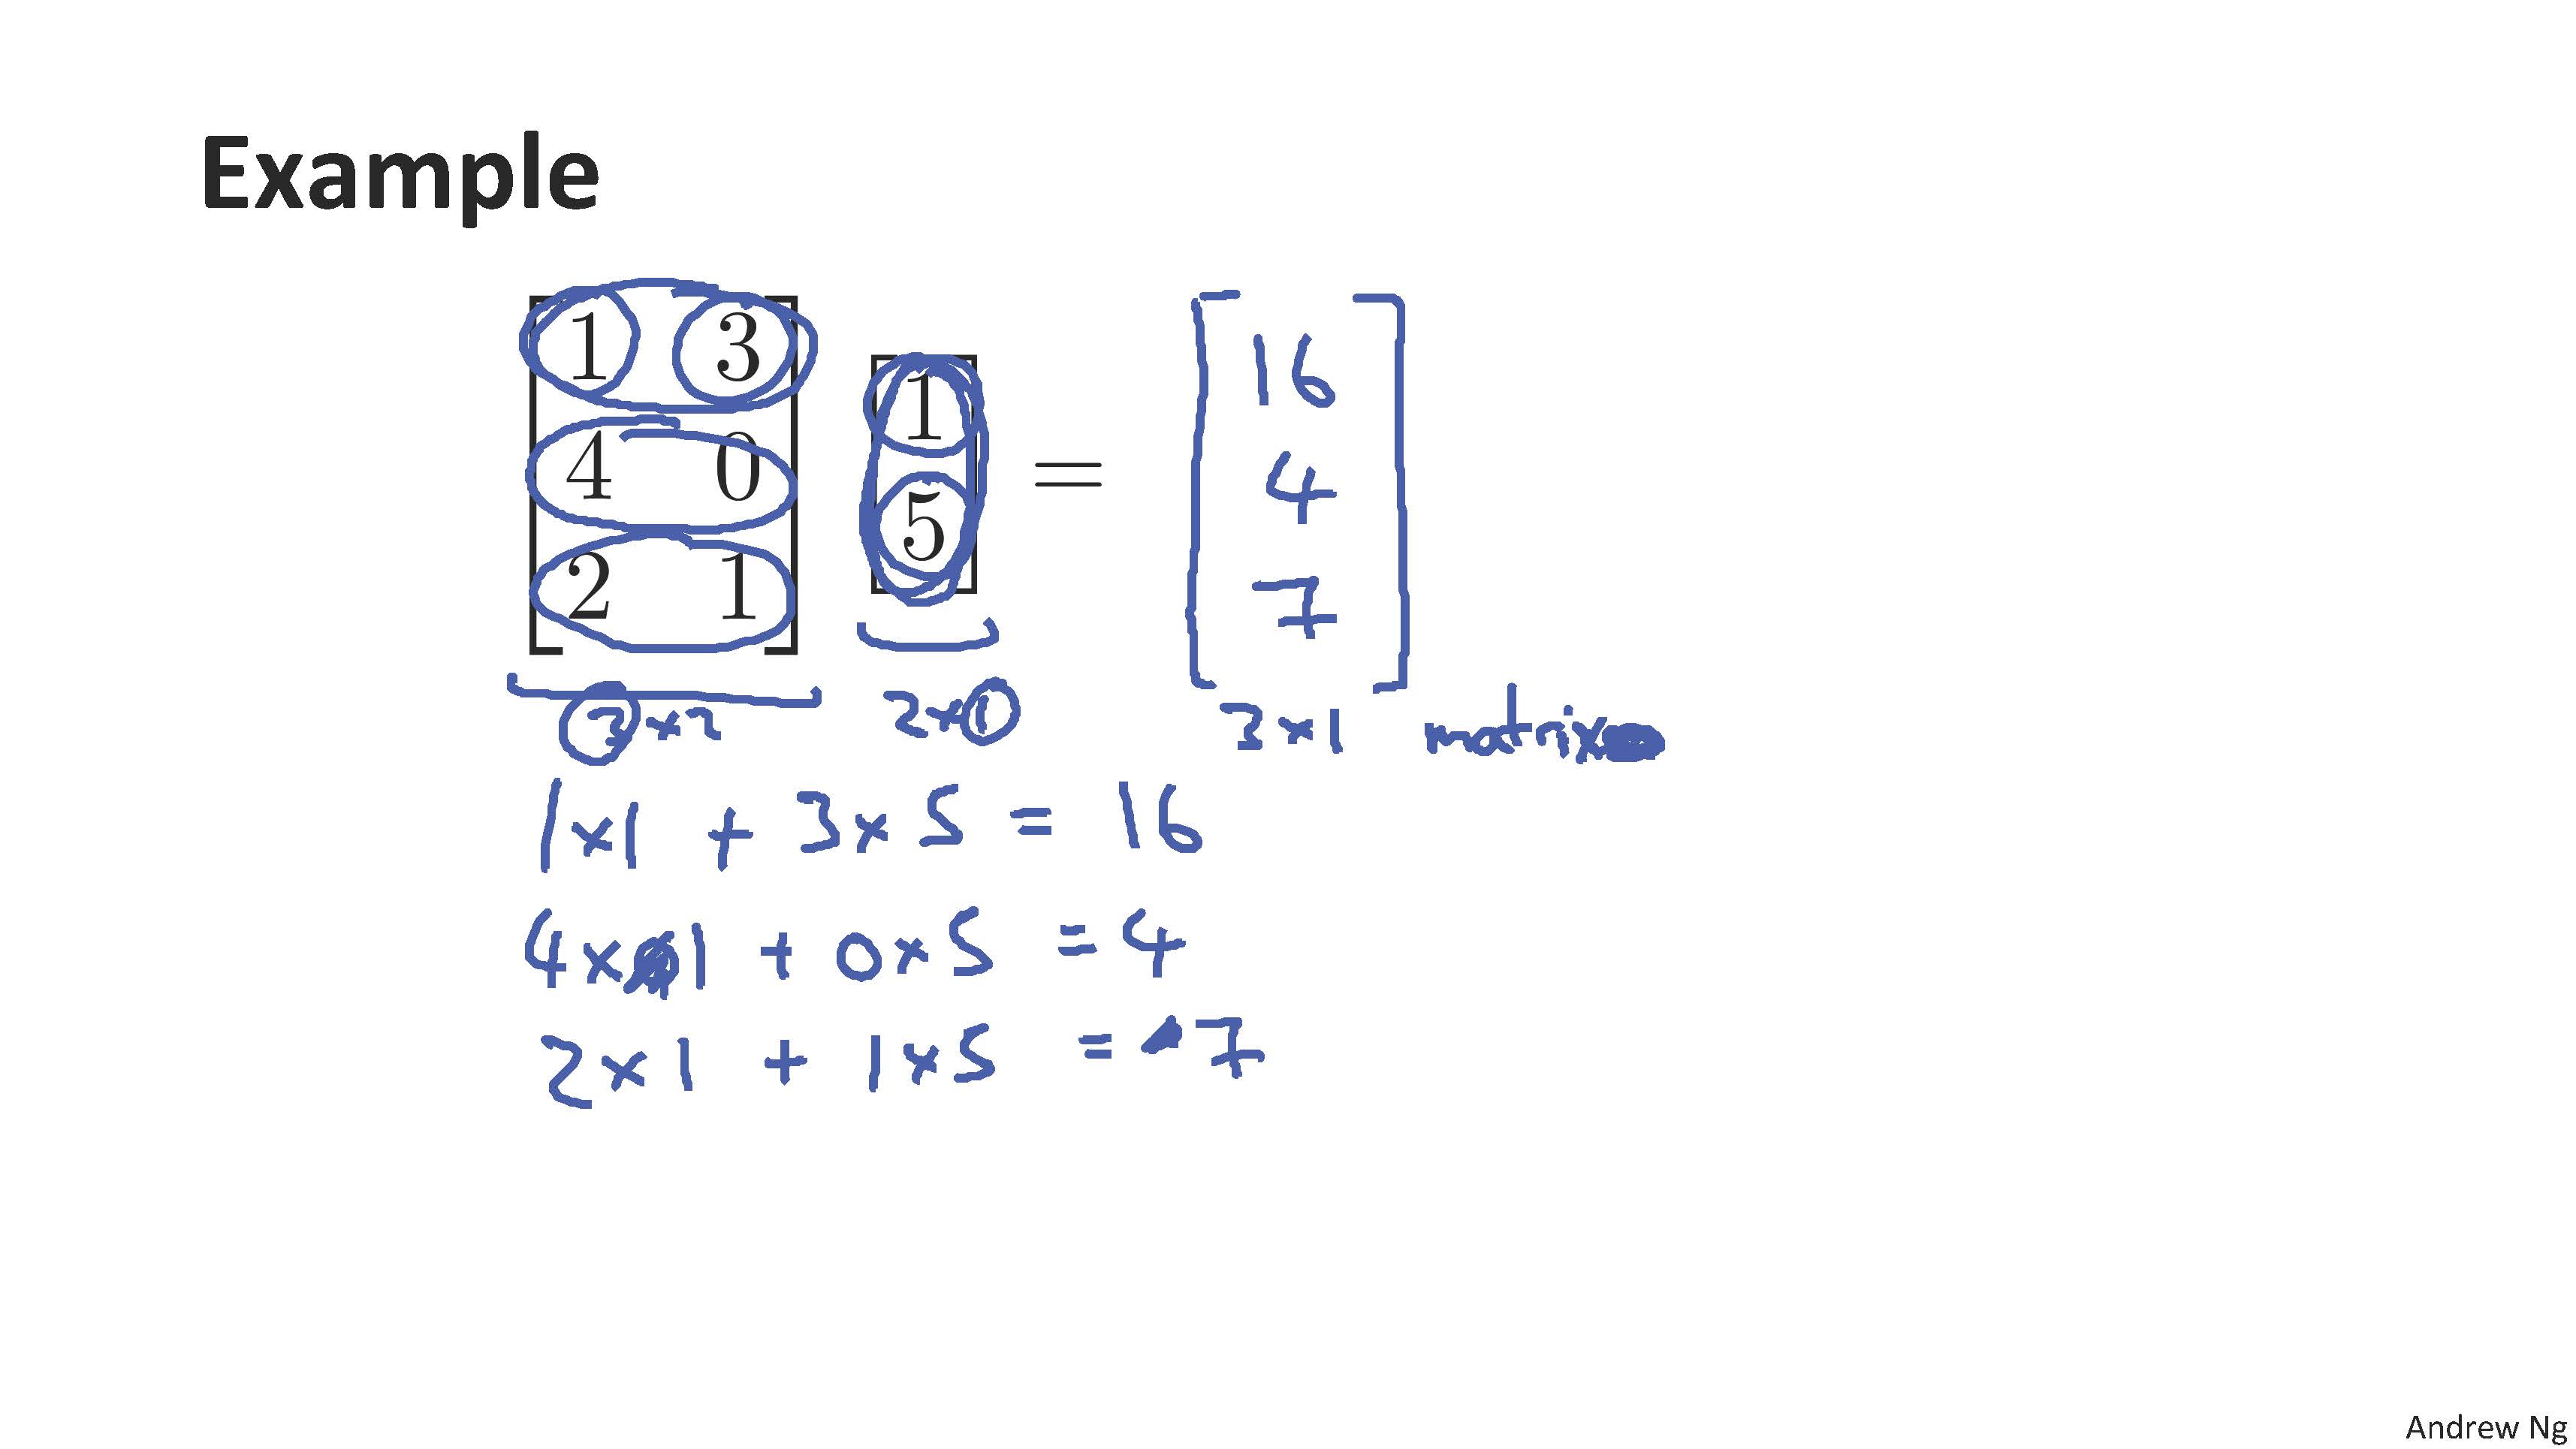 Example
1 3
4 0
2 1
1
5
=
16
4
7
3 × 2
2 × 1
3 × 1 matrix
1 × 1 + 3 × 5 = 16
4 × 1 + 0 × 5 = 4
2 × 1 + 1 × 5 = 7
Andrew Ng